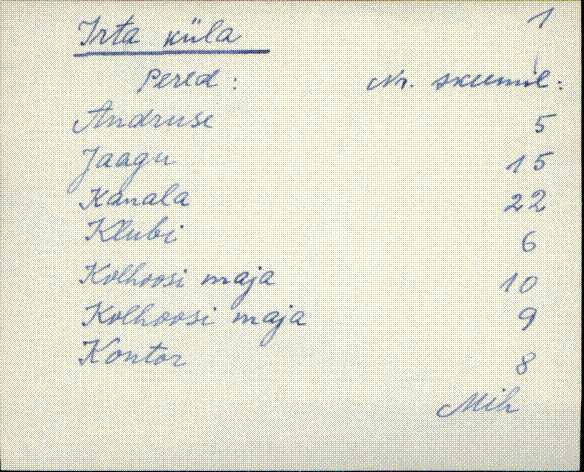 Irta küla 1
Pered: Nr. skeemil:
Andruse 5
Jaagu 15
Kanala 22
Klubi 6
Kolhoosi maja 10
Kolhoosi maja 9
Kontor 8
Mih